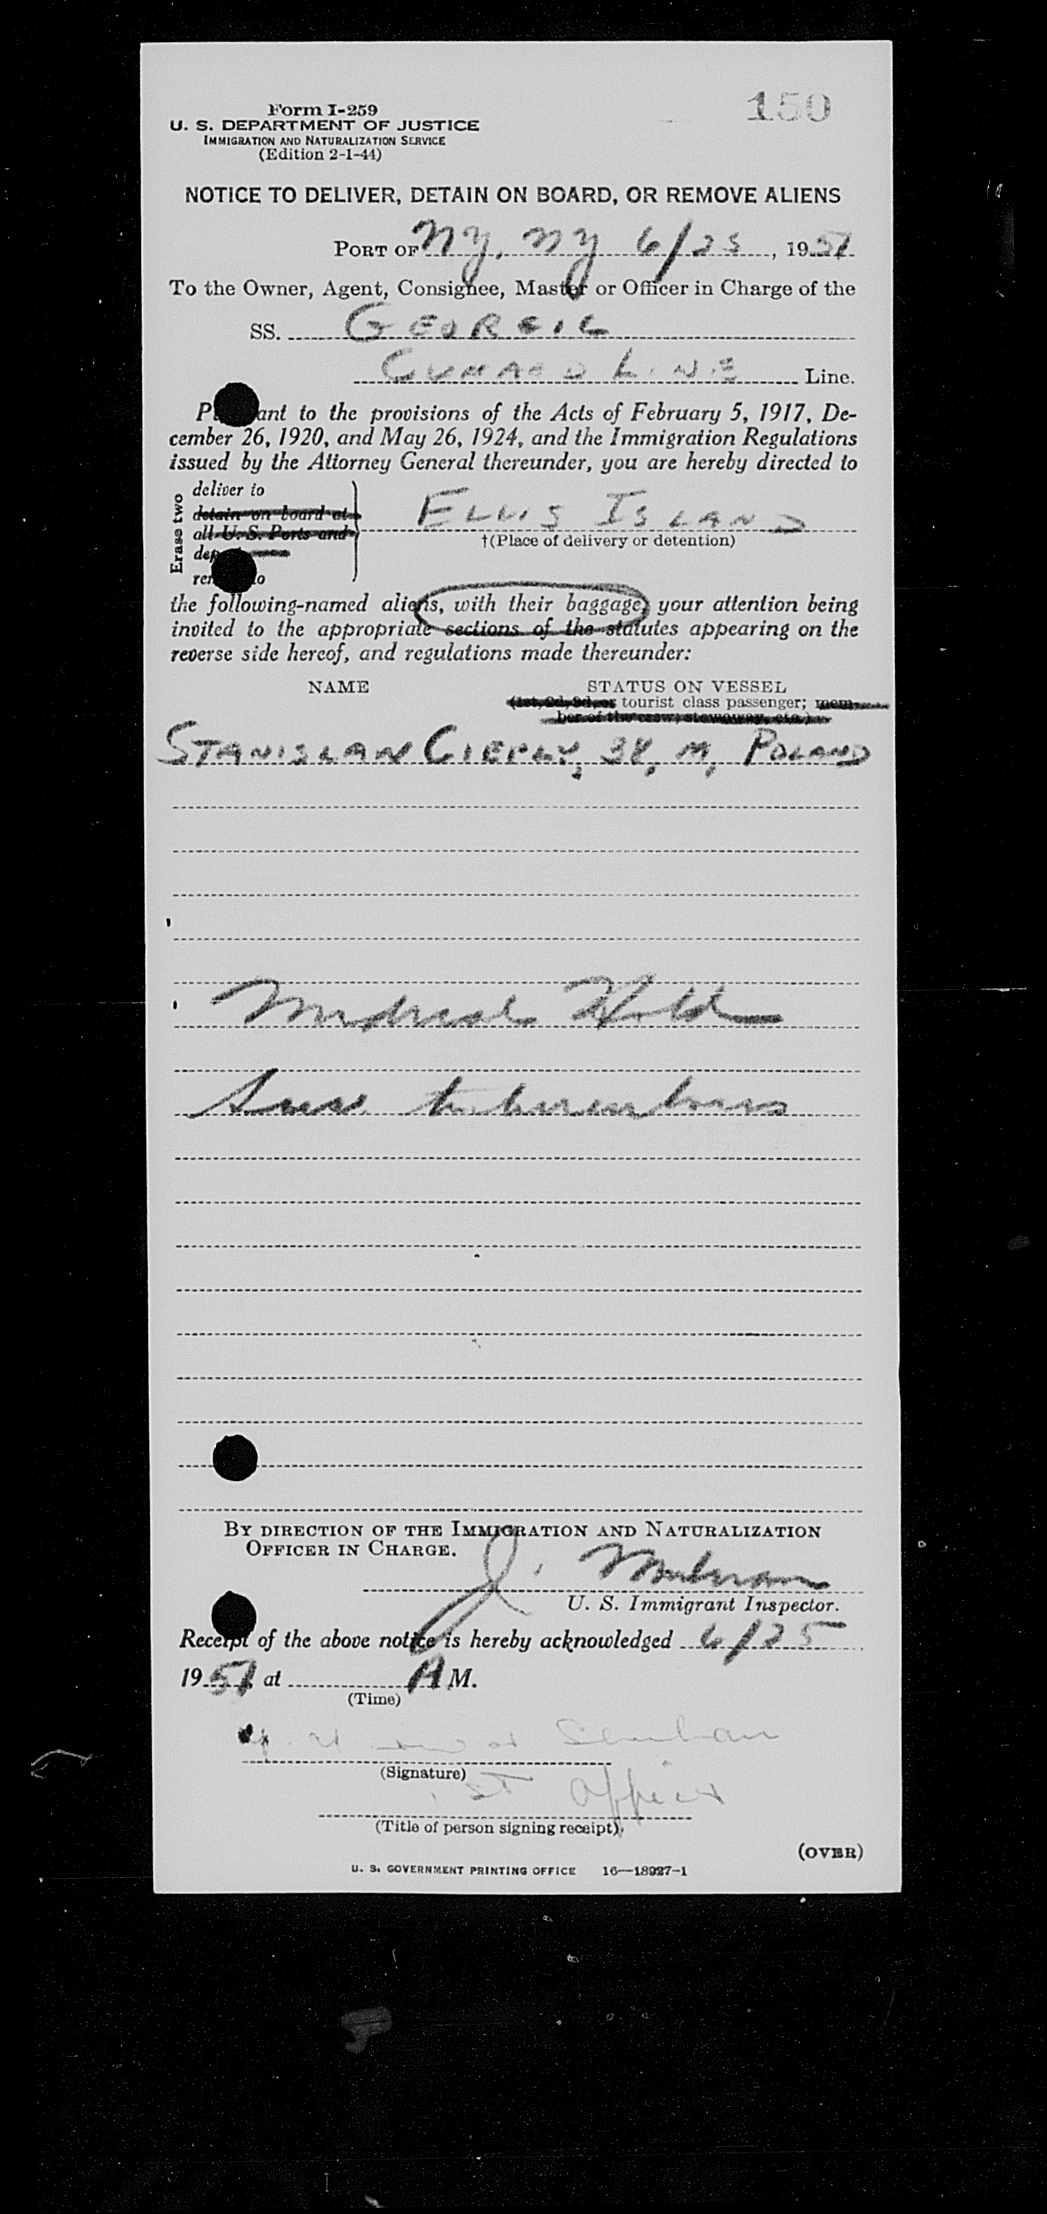 150
Form I-259
U. S. DEPARTMENT OF JUSTICE
IMMIGRATION AND NATURALIZATION SERVICE
(Edition 2-1-44)
NOTICE TO DELIVER, DETAIN ON BOARD, OR REMOVE ALIENS
PORT OF NY, NY 6/25, 1951
To the Owner, Agent, Consignee, Master or Officer in Charge of the
SS. GEORGIC
CUNARD LINE Line.
Pursuant to the provisions of the Acts of February 5, 1917, De-
cember 26, 1920, and May 26, 1924, and the Immigration Regulations
issued by the Attorney General thereunder, you are hereby directed to
Erase two
deliver to
detain on board at
all U. S. Ports and
remove to
ELLIS ISLAND
†(Place of delivery or detention)
the following-named aliens, with their baggage, your attention being
invited to the appropriate sections of the statutes appearing on the
reverse side hereof, and regulations made thereunder:
NAME STATUS ON VESSEL
(1st, 2d, 3d, or tourist class passenger; mem-
ber of the crew; stowaway, etc.)
STANISLAW CIEPLY, 38, M, POLAND
Medical Hold
Susp. tuberculosis
BY DIRECTION OF THE IMMIGRATION AND NATURALIZATION
OFFICER IN CHARGE.
J.
U. S. Immigrant Inspector.
Receipt of the above notice is hereby acknowledged 6/25
1951 at A M.
(Time)
(Signature)
1st Officer
(Title of person signing receipt)
(OVER)
U. S. GOVERNMENT PRINTING OFFICE 16—18927-1